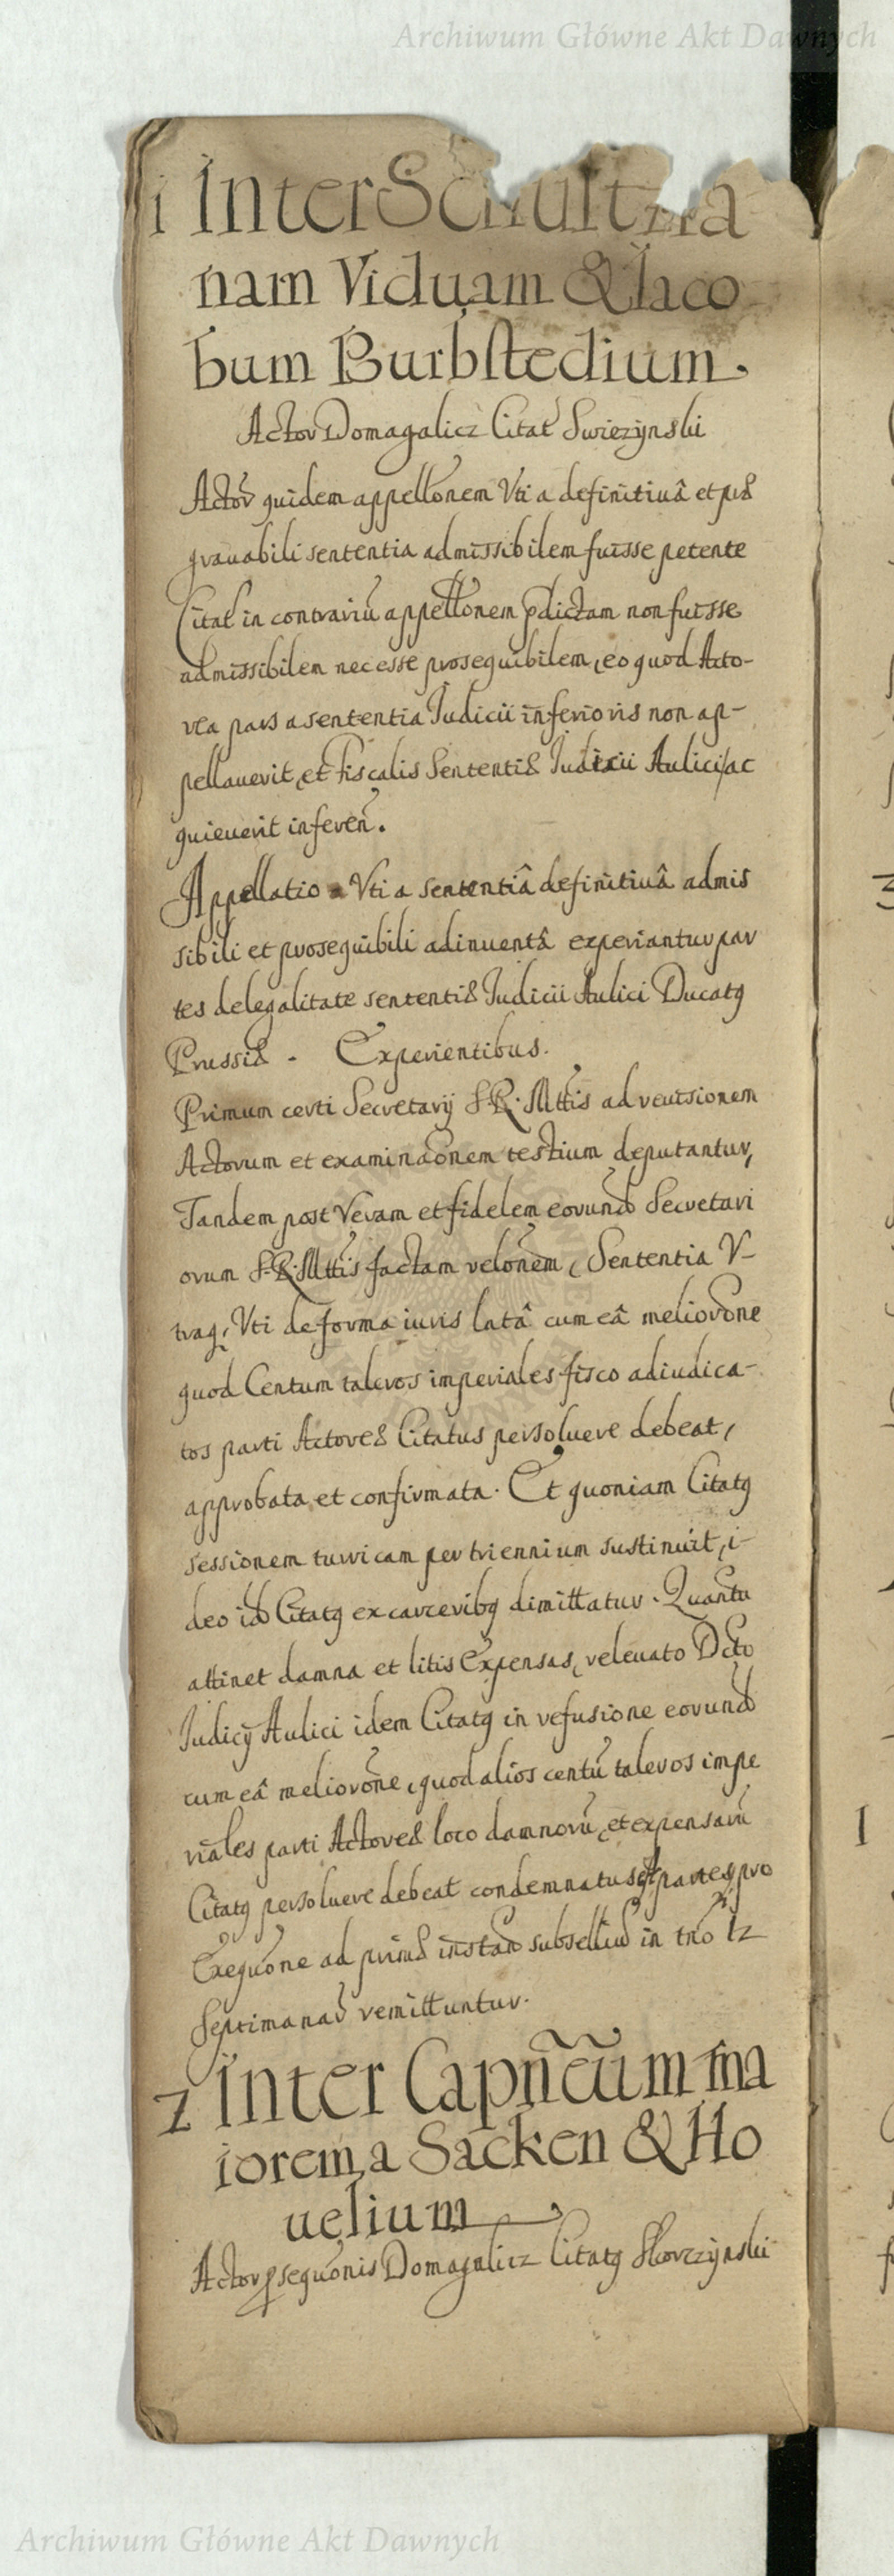 Archiwum Główne Akt Dawnych
1 Inter Schultzia
nam Viduam & Iaco
bum Burbstedium.
Actor Domagalicz Citat Swiezynski
Actor quidem appellonem Vti a definitiuâ et
grauabili sententia admissibilem fuisse petente
Citat in contrariũ appellonem pdictam non fuisse
admissibilem nec esse prosequibilem, eo quod Acto-
rea pars a sententia Iudicii inferioris non ap-
pellauerit, et Fiscalis Sententiæ Iudicii Aulici ac
quieuerit inferen̄.
Appellatio Vti a sententiâ definitiuâ admis
sibili et prosequibili adinuentâ experiantur par
tes de legalitate sententiæ Iudicii Aulici Ducatq
Prussiæ. Experientibus.
Primum certi Secretarij S. R. Mttis ad reuisionem
Actorum et examinaonem testium deputantur,
Tandem post Veram et fidelem eorund Secretari
orum S. R. Mttis factam relonem, Sententia V-
traq, Vti de forma iuris latâ cum eâ meliorone
quod Centum taleros imperiales fisco adiudica-
tos parti Actoreæ Citatus persoluere debeat,
approbata et confirmata. Et quoniam Citatq
sessionem turricam per triennium sustinuit, i-
deo id Citatq ex carceribq dimittatur. Quantu
attinet damna et litis Expensas, releuato Dcto
Iudicij Aulici idem Citatq in refusione eorund
cum eâ meliorone, quod alios centũ taleros impe
riales parti Actoreæ loco damnorũ, et expensarũ
Citatq persoluere debeat condemnatus est partesq pro
Exequone ad primæ instan subselliũ in tno 12
Septimanar remittuntur.
2 Inter Capnēum ma
iorem a Sacken & Ho
uelium
Actor psequonis Domagalicz Citatq Skorczynski
Archiwum Główne Akt Dawnych